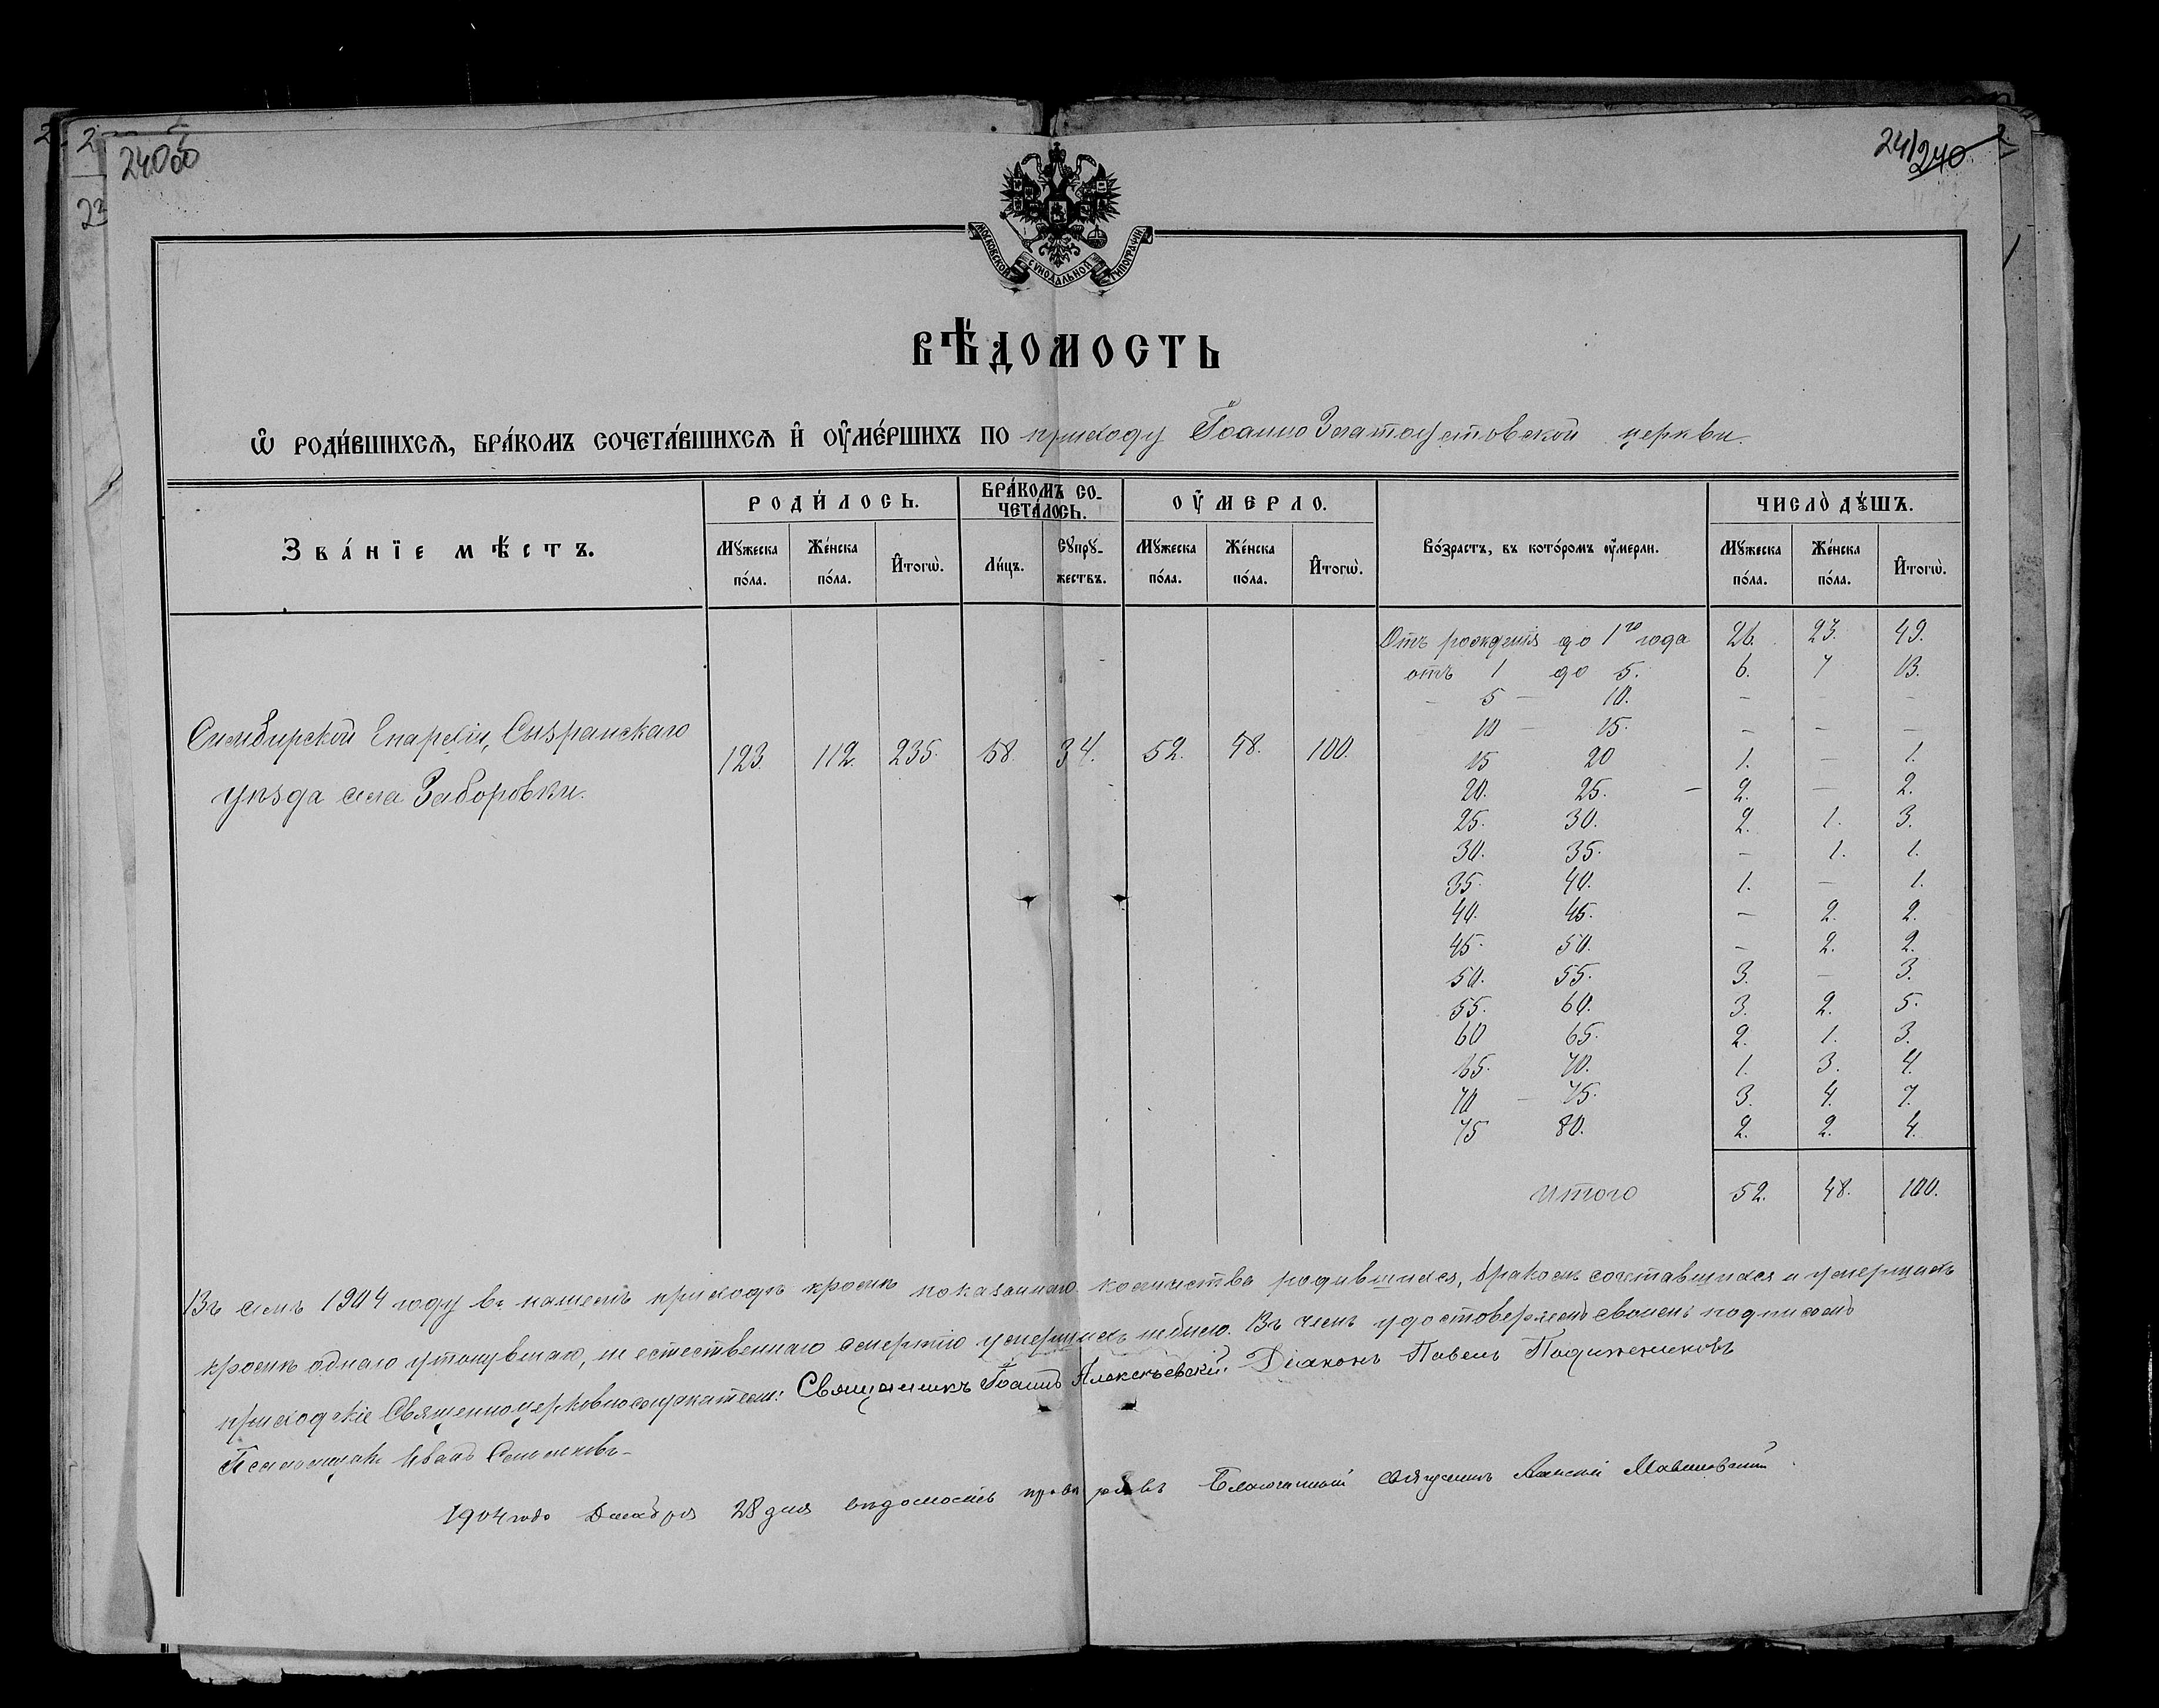 240об
241 240
МОСКОВСКОЙ СѴНОДАЛЬНОЙ ТИПОГРАФІИ
ВѢ́ДОМОСТЬ
Ѡ҆ РОДИ́ВШИХСѦ, БРА́КОМЪ СОЧЕТА́ВШИХСѦ И҆ ОУ҆МЕ́РШИХЪ ПО приходу Іоанно Златоустовской церкви.
Зва́нїе мѣ́стъ.
РОДИ́ЛОСЬ.
БРА́КОМЪ СО-
ЧЕТА́ЛОСЬ.
ОУ҆́МЕРЛО.
Во́зрастъ, въ кото́ромъ оу҆́мерли.
ЧИСЛО̀ ДꙊ́ШЪ.
Мꙋ́жеска по́ла. Же́нска по́ла. И҆тогѡ̀. Ли́цъ. Сꙋпрꙋ́-жествъ. Мꙋ́жеска по́ла. Же́нска по́ла. И҆тогѡ̀. Мꙋ́жеска по́ла. Же́нска по́ла. И҆тогѡ̀.
Симбирской Епархіи, Сызранскаго
уѣзда села Заборовки.
123. 112. 235. 68. 34. 52. 48. 100.
Отъ рожденія до 1го года 26. 23. 49.
отъ 1 до 5. 6. 7 13.
– 5 – 10. – – –
10 – 15. – – –
15 20 1. – 1.
20. 25. – 2. – 2.
25. 30. 2. 1. 3.
30. 35. – 1. 1.
35. 40. 1. – 1.
40. 45. – 2. 2.
45. 50. – 2. 2.
50. 55. 3. – 3.
55. 60. 3. 2. 5.
60 65. 2. 1. 3.
65. 70. 1. 3. 4.
70 – 75. 3. 4. 7.
75 80. 2. 2. 4.
Итого 52. 48. 100.
Въ семъ 1904 году въ нашемъ приходѣ кромѣ показаннаго количества родившихся, бракомъ сочетавшихся и умершихъ
кромѣ одного утонувшаго, не естественною смертію умершихъ небыло. Въ чемъ удостовѣряемъ своимъ подписомъ
приходскіе Священноцерковнослужители: Священникъ Іоаннъ Алексѣевскій. Діаконъ Павелъ
Псаломщикъ Иванъ
1904 года Декабря 28 дня вѣдомость провѣрялъ Благочинный священникъ